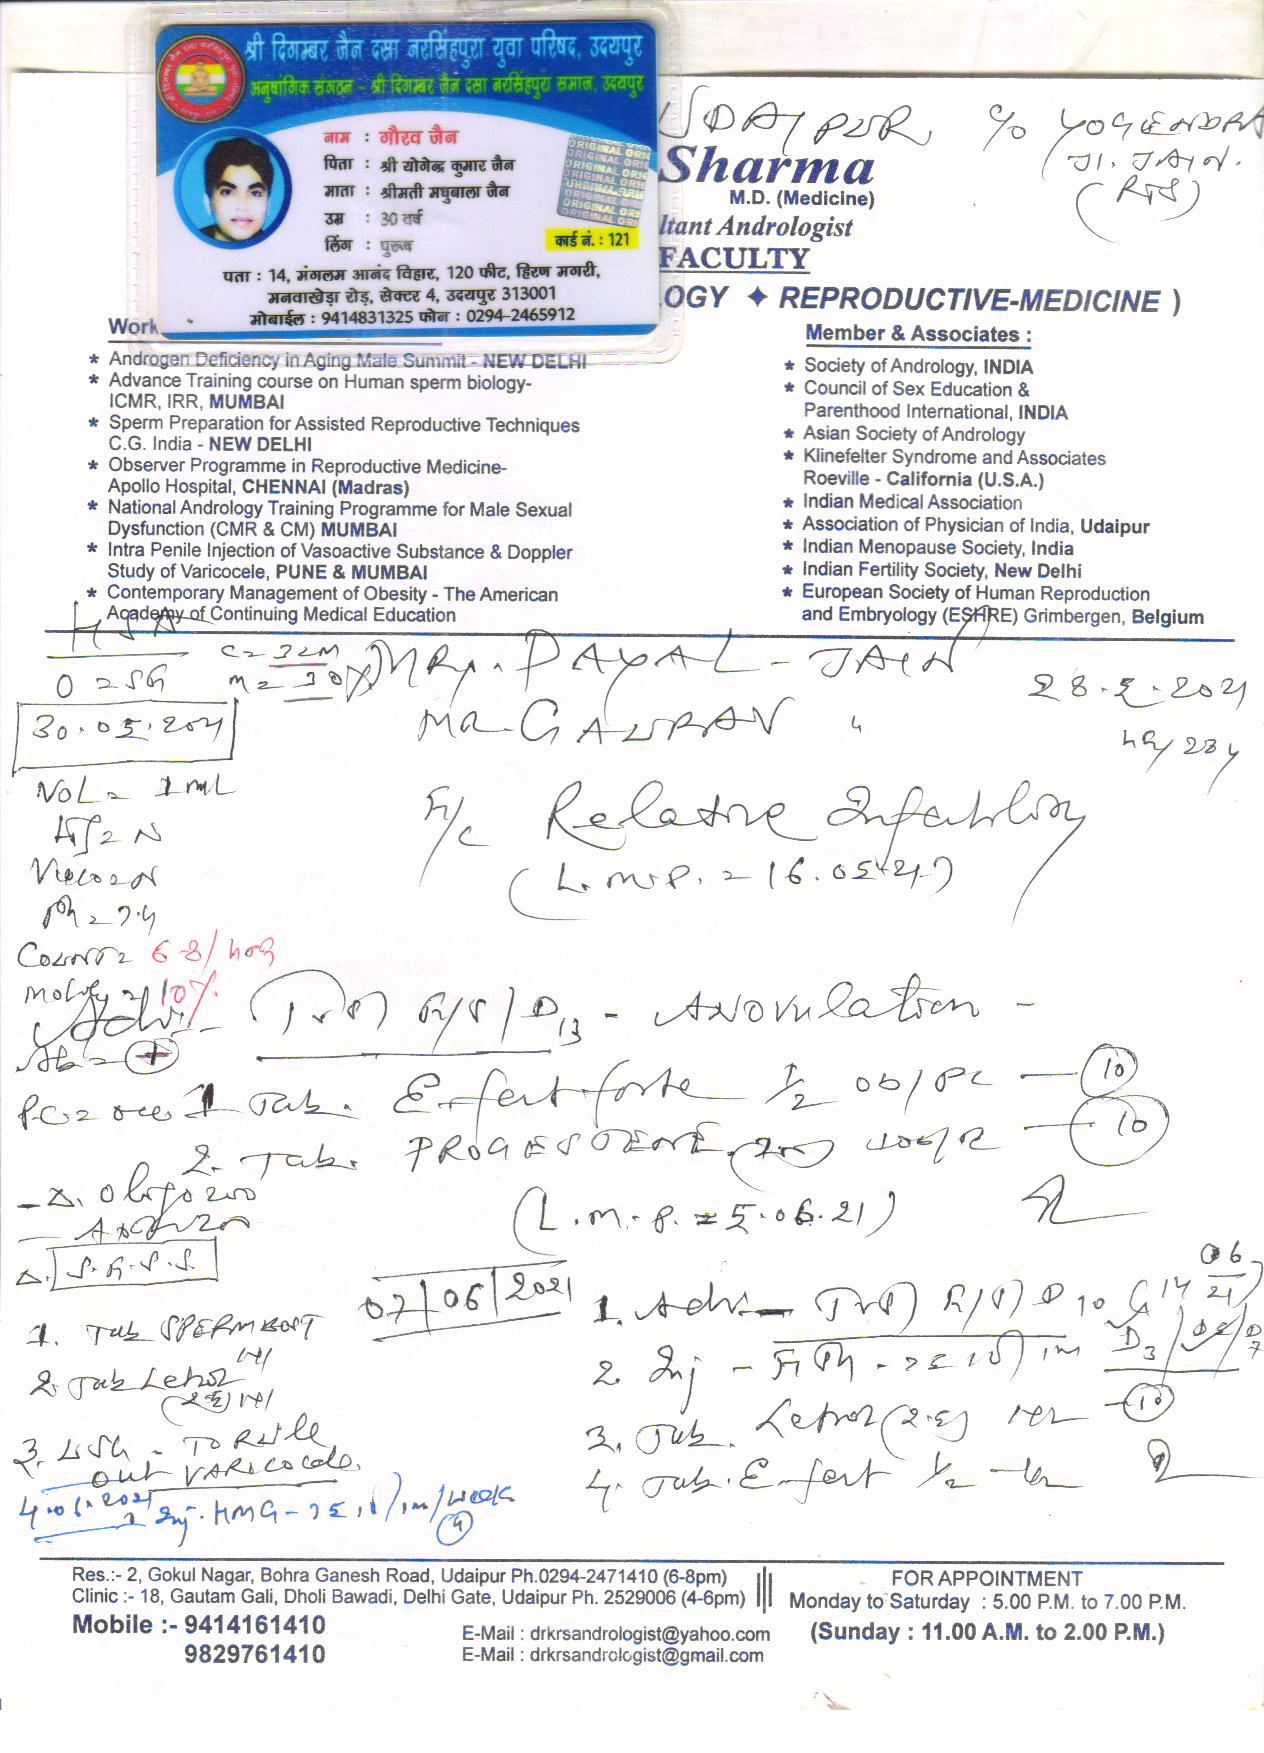 श्री दिगम्बर जैन दसा नरसिंहपुरा युवा परिषद, उदयपुर
अनुषांगिक संगठन - श्री दिगम्बर जैन दसा नरसिंहपुरा समाज, उदयपुर
नाम : गौरव जैन
पिता : श्री योगेन्द्र कुमार जैन
माता : श्रीमती मधुबाला जैन
उम्र : 30 वर्ष
लिंग : पुरूष
ORIGINAL
कार्ड नं. : 121
पता : 14, मंगलम आनंद विहार, 120 फीट, हिरण मगरी,
मनवाखेड़ा रोड़, सेक्टर 4, उदयपुर 313001
मोबाईल : 9414831325 फोन : 0294-2465912
UDAIPUR C/o YOGENDRA
JAIN.
Sharma
M.D. (Medicine)
ltant Andrologist
FACULTY
OGY ✦ REPRODUCTIVE-MEDICINE )
Work
* Androgen Deficiency in Aging Male Summit - NEW DELHI
* Advance Training course on Human sperm biology-
ICMR, IRR, MUMBAI
* Sperm Preparation for Assisted Reproductive Techniques
C.G. India - NEW DELHI
* Observer Programme in Reproductive Medicine-
Apollo Hospital, CHENNAI (Madras)
* National Andrology Training Programme for Male Sexual
Dysfunction (CMR & CM) MUMBAI
* Intra Penile Injection of Vasoactive Substance & Doppler
Study of Varicocele, PUNE & MUMBAI
* Contemporary Management of Obesity - The American
Academy of Continuing Medical Education
Member & Associates :
* Society of Andrology, INDIA
* Council of Sex Education &
Parenthood International, INDIA
* Asian Society of Andrology
* Klinefelter Syndrome and Associates
Roeville - California (U.S.A.)
* Indian Medical Association
* Association of Physician of India, Udaipur
* Indian Menopause Society, India
* Indian Fertility Society, New Delhi
* European Society of Human Reproduction
and Embryology (ESHRE) Grimbergen, Belgium
HSA
MRs. PAYAL - JAIN
28.5.2021
30.05.2021
MR. GAURAV "
VOL = 1 mL
F/c Relative Infertility
(L.M.P. = 16.05.21)
PH = 7.4
Count = 6-8/
Motility = 10%
Adv. - TVS F/S/D13 - ANOVULATION -
1 Tab. E-fert forte 1/2 OD/PC — 10
2. Tab. PROGESTERONE (200) — 10
(L.M.P. = 5.06.21)
07/06/2021
1. Tab SPERMBOST
2. Tab Letroz
(2.5)
3. USG - TO RULE
OUT VARICOCELE
4.06.2021
1 Inj. HMG - 75 IU/IM/week
(4)
1. Adv. - TVS F/S/D 10
2. Inj - 75 IU IM D3/D5/D7
3. Tab. Letroz (2.5) — 10
4. Tab. E-fert 1/2
Res.:- 2, Gokul Nagar, Bohra Ganesh Road, Udaipur Ph.0294-2471410 (6-8pm)
Clinic :- 18, Gautam Gali, Dholi Bawadi, Delhi Gate, Udaipur Ph. 2529006 (4-6pm)
Mobile :- 9414161410
9829761410
E-Mail : drkrsandrologist@yahoo.com
E-Mail : drkrsandrologist@gmail.com
FOR APPOINTMENT
Monday to Saturday : 5.00 P.M. to 7.00 P.M.
(Sunday : 11.00 A.M. to 2.00 P.M.)